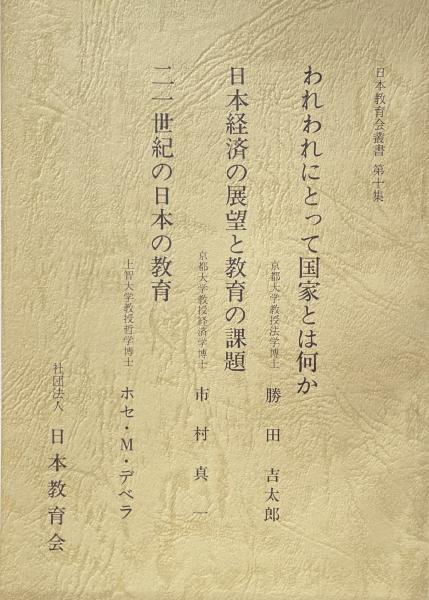 日本教育会叢書 第十集
われわれにとって国家とは何か
京都大学教授法学博士 勝田吉太郎
日本経済の展望と教育の課題
京都大学教授経済学博士 市村真一
二一世紀の日本の教育
上智大学教授哲学博士 ホセ・M・デベラ
社団法人 日本教育会